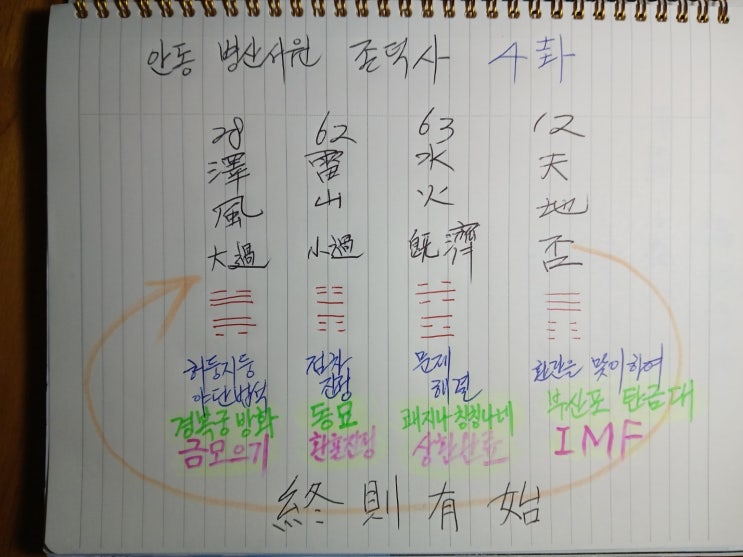 안동 병산서원 존덕사 4卦
28 62 63 12
澤 雷 水 天
風 山 火 地
大過 小過 旣濟 否
허둥지둥 점차 문제 한관을 맞이하여
야단법석 진정 해결
경복궁 방화 동묘 쾌지나 칭칭나네 부산포 탄금대
금모으기 환율진정 상환완료 IMF
終則有始